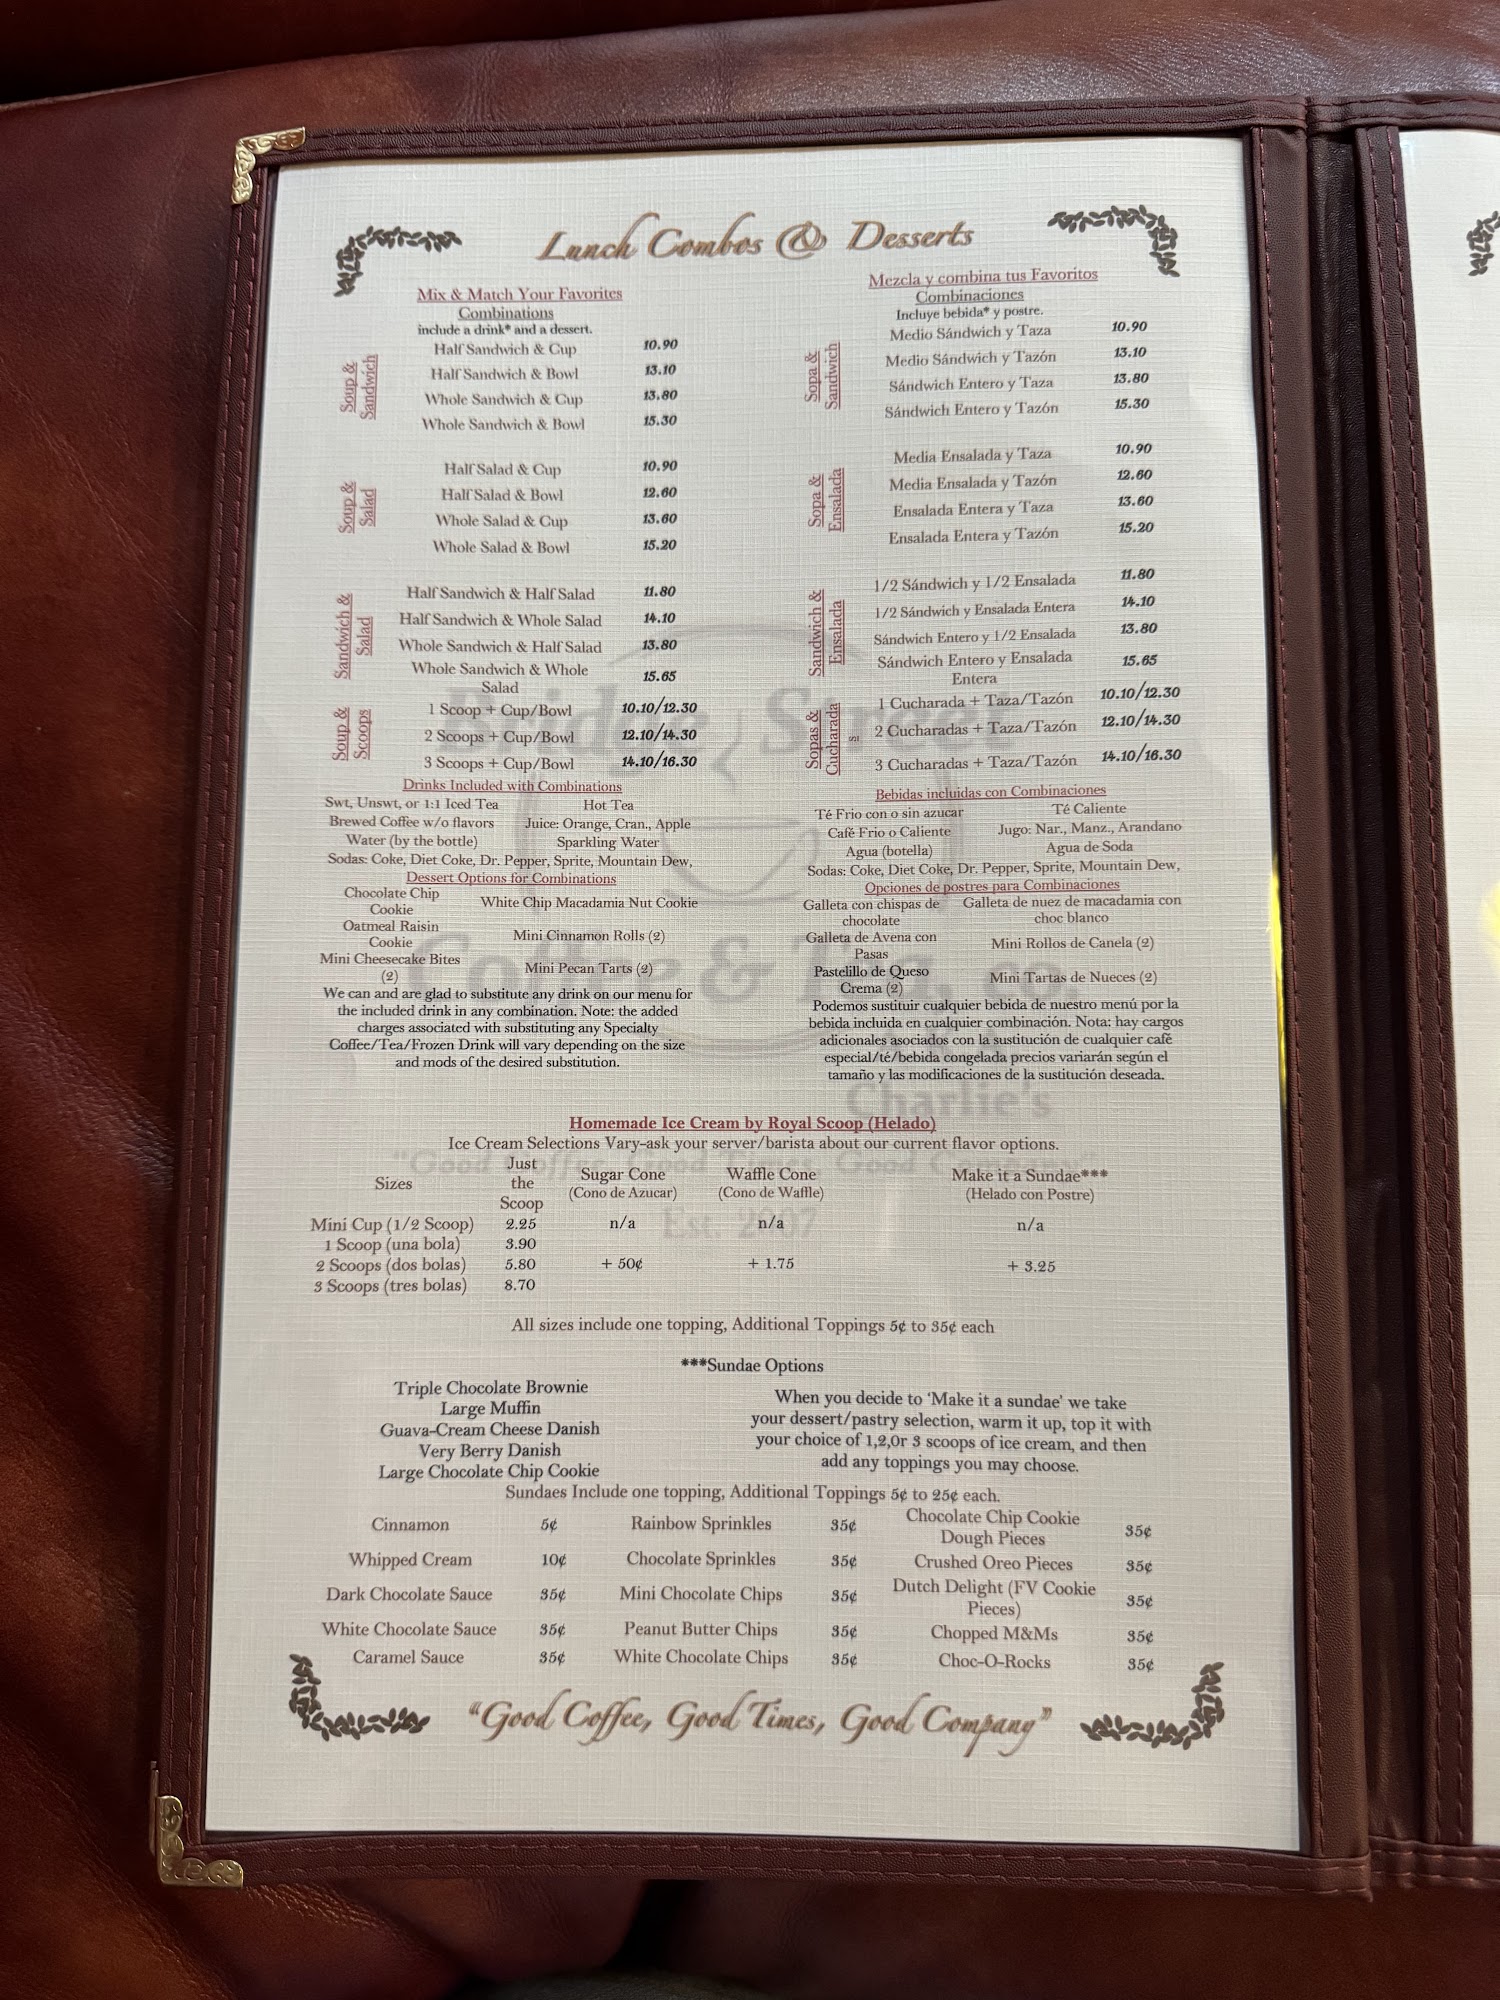 Lunch Combos & Desserts
Mix & Match Your Favorites
Combinations
include a drink* and a dessert.
Soup &
Sandwich
Half Sandwich & Cup 10.90
Half Sandwich & Bowl 13.10
Whole Sandwich & Cup 13.80
Whole Sandwich & Bowl 15.30
Soup &
Salad
Half Salad & Cup 10.90
Half Salad & Bowl 12.60
Whole Salad & Cup 13.60
Whole Salad & Bowl 15.20
Sandwich &
Salad
Half Sandwich & Half Salad 11.80
Half Sandwich & Whole Salad 14.10
Whole Sandwich & Half Salad 13.80
Whole Sandwich & Whole
Salad 15.65
Soup &
Scoops
1 Scoop + Cup/Bowl 10.10/12.30
2 Scoops + Cup/Bowl 12.10/14.30
3 Scoops + Cup/Bowl 14.10/16.30
Drinks Included with Combinations
Swt, Unswt, or 1:1 Iced Tea Hot Tea
Brewed Coffee w/o flavors Juice: Orange, Cran., Apple
Water (by the bottle) Sparkling Water
Sodas: Coke, Diet Coke, Dr. Pepper, Sprite, Mountain Dew,
Dessert Options for Combinations
Chocolate Chip
Cookie White Chip Macadamia Nut Cookie
Oatmeal Raisin
Cookie Mini Cinnamon Rolls (2)
Mini Cheesecake Bites
(2) Mini Pecan Tarts (2)
We can and are glad to substitute any drink on our menu for
the included drink in any combination. Note: the added
charges associated with substituting any Specialty
Coffee/Tea/Frozen Drink will vary depending on the size
and mods of the desired substitution.
Mezcla y combina tus Favoritos
Combinaciones
Incluye bebida* y postre.
Sopa &
Sandwich
Medio Sándwich y Taza 10.90
Medio Sándwich y Tazón 13.10
Sándwich Entero y Taza 13.80
Sándwich Entero y Tazón 15.30
Sopa &
Ensalada
Media Ensalada y Taza 10.90
Media Ensalada y Tazón 12.60
Ensalada Entera y Taza 13.60
Ensalada Entera y Tazón 15.20
Sandwich &
Ensalada
1/2 Sándwich y 1/2 Ensalada 11.80
1/2 Sándwich y Ensalada Entera 14.10
Sándwich Entero y 1/2 Ensalada 13.80
Sándwich Entero y Ensalada
Entera 15.65
Sopas &
Cucharada
s
1 Cucharada + Taza/Tazón 10.10/12.30
2 Cucharadas + Taza/Tazón 12.10/14.30
3 Cucharadas + Taza/Tazón 14.10/16.30
Bebidas incluidas con Combinaciones
Té Frio con o sin azucar Té Caliente
Café Frio o Caliente Jugo: Nar., Manz., Arandano
Agua (botella) Agua de Soda
Sodas: Coke, Diet Coke, Dr. Pepper, Sprite, Mountain Dew,
Opciones de postres para Combinaciones
Galleta con chispas de
chocolate Galleta de nuez de macadamia con
choc blanco
Galleta de Avena con
Pasas Mini Rollos de Canela (2)
Pastelillo de Queso
Crema (2) Mini Tartas de Nueces (2)
Podemos sustituir cualquier bebida de nuestro menú por la
bebida incluida en cualquier combinación. Nota: hay cargos
adicionales asociados con la sustitución de cualquier café
especial/té/bebida congelada precios variarán según el
tamaño y las modificaciones de la sustitución deseada.
Bridge Street
Coffee & Tea, co.
Charlie's
Est. 2007
Homemade Ice Cream by Royal Scoop (Helado)
Ice Cream Selections Vary-ask your server/barista about our current flavor options.
Sizes
Just
the
Scoop
Sugar Cone
(Cono de Azucar)
Waffle Cone
(Cono de Waffle)
Make it a Sundae***
(Helado con Postre)
Mini Cup (1/2 Scoop) 2.25 n/a n/a n/a
1 Scoop (una bola) 3.90
2 Scoops (dos bolas) 5.80 + 50¢ + 1.75 + 3.25
3 Scoops (tres bolas) 8.70
All sizes include one topping, Additional Toppings 5¢ to 35¢ each
***Sundae Options
Triple Chocolate Brownie
Large Muffin
Guava-Cream Cheese Danish
Very Berry Danish
Large Chocolate Chip Cookie
When you decide to 'Make it a sundae' we take
your dessert/pastry selection, warm it up, top it with
your choice of 1,2,0r 3 scoops of ice cream, and then
add any toppings you may choose.
Sundaes Include one topping, Additional Toppings 5¢ to 25¢ each.
Cinnamon 5¢ Rainbow Sprinkles 35¢ Chocolate Chip Cookie
Dough Pieces 35¢
Whipped Cream 10¢ Chocolate Sprinkles 35¢ Crushed Oreo Pieces 35¢
Dark Chocolate Sauce 35¢ Mini Chocolate Chips 35¢ Dutch Delight (FV Cookie
Pieces) 35¢
White Chocolate Sauce 35¢ Peanut Butter Chips 35¢ Chopped M&Ms 35¢
Caramel Sauce 35¢ White Chocolate Chips 35¢ Choc-O-Rocks 35¢
"Good Coffee, Good Times, Good Company"